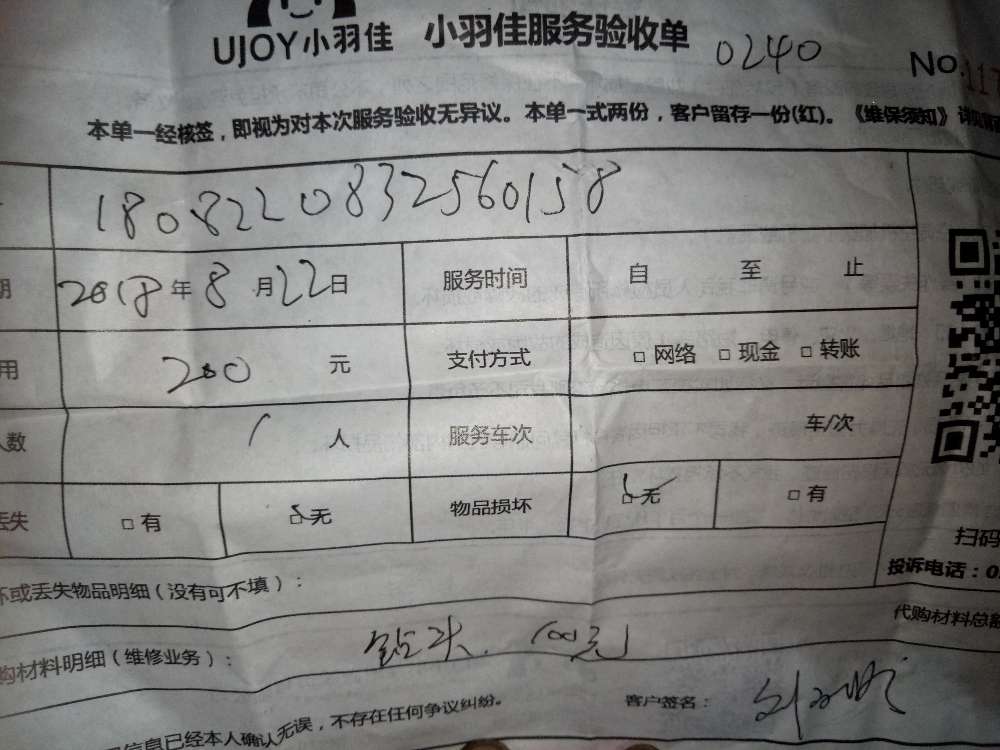 UJOY小羽佳 小羽佳服务验收单 0240 No.117
本单一经核签，即视为对本次服务验收无异议。本单一式两份，客户留存一份(红)。《维保须知》详
1808220832560158
期 2018年8月22日 服务时间 自 至 止
用 200 元 支付方式 □ 网络 □ 现金 □ 转账
人数 1 人 服务车次 车/次
丢失 □ 有 □ 无 物品损坏 □ 无 □ 有
扫码
投诉电话：0
坏或丢失物品明细（没有可不填）：
代购材料总额
购材料明细（维修业务）： 钻头. 100元
客户签名：
信息已经本人确认无误，不存在任何争议纠纷。